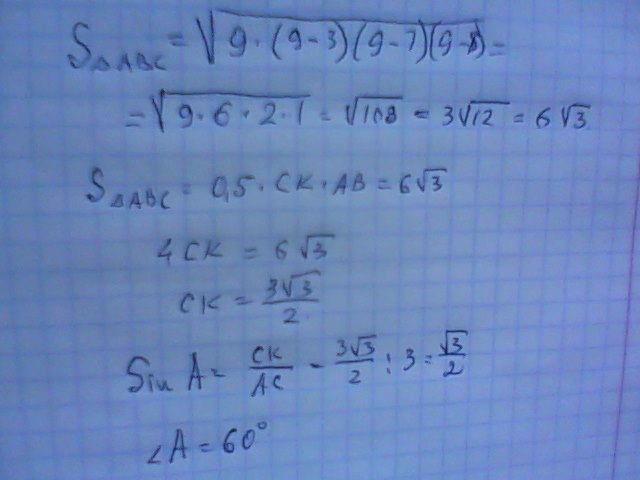 S△ABC = √9·(9-3)(9-7)(9-8) =
= √9·6·2·1 = √108 = 3√12 = 6√3
S△ABC = 0,5·CK·AB = 6√3
4CK = 6√3
CK = 3√3/2
Sin A = CK/AC = 3√3/2 : 3 = √3/2
∠A = 60°